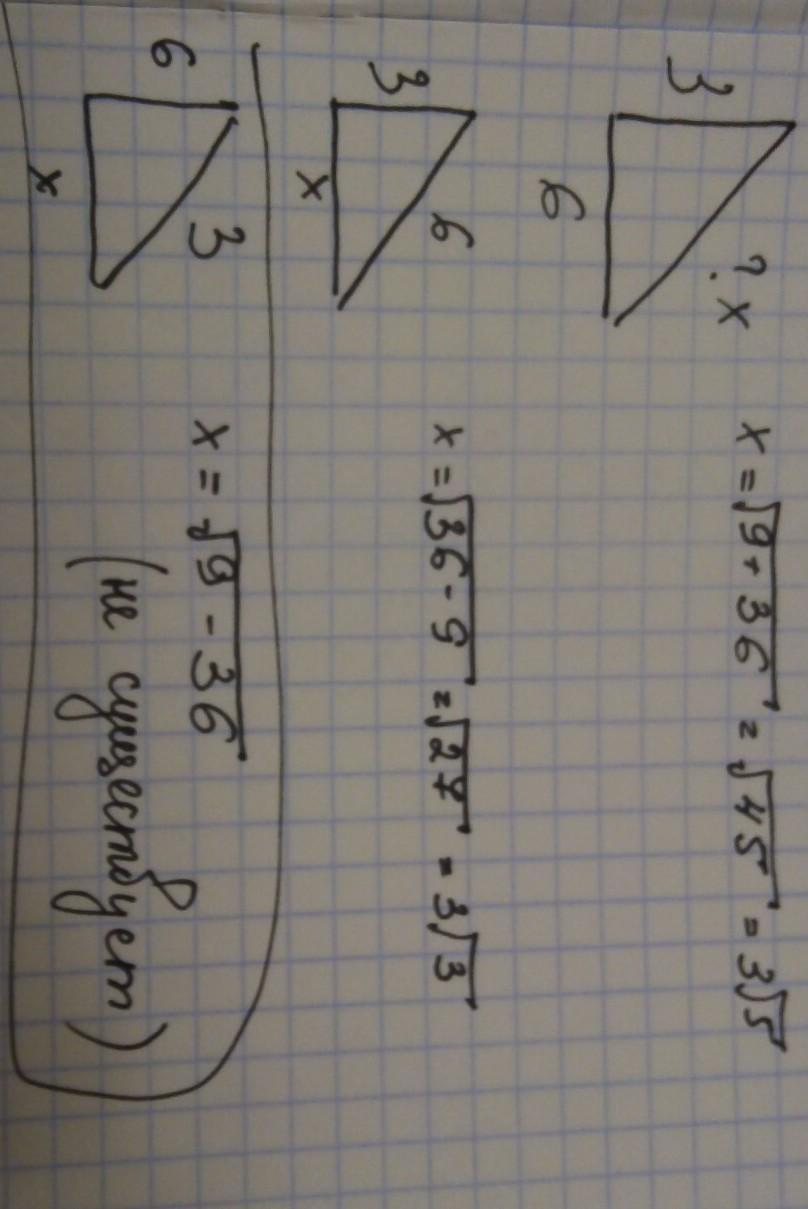 3 ? x
6
x = √9 + 36 = √45 = 3√5
3 6
x
x = √36 - 9 = √27 = 3√3
6 3
x
x = √9 - 36
(не существует)